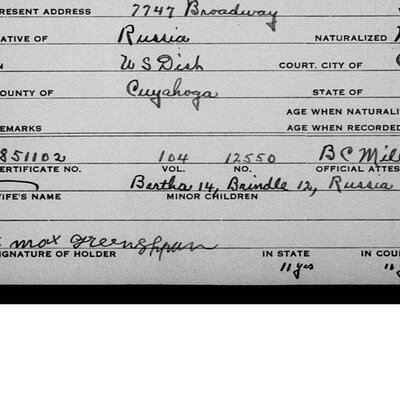 RESENT ADDRESS 7747 Broadway
ATIVE OF Russia NATURALIZED
N U S Dish COURT. CITY OF
OUNTY OF Cuyahoga STATE OF
AGE WHEN NATURALI
EMARKS AGE WHEN RECORDED
851102 104 12550 B C Mill
ERTIFICATE NO. VOL. NO. OFFICIAL ATTES
Bertha 14, Braindle 12, Russia
IFE'S NAME MINOR CHILDREN
max Greenshpan
IGNATURE OF HOLDER IN STATE IN COU
11 yrs 11